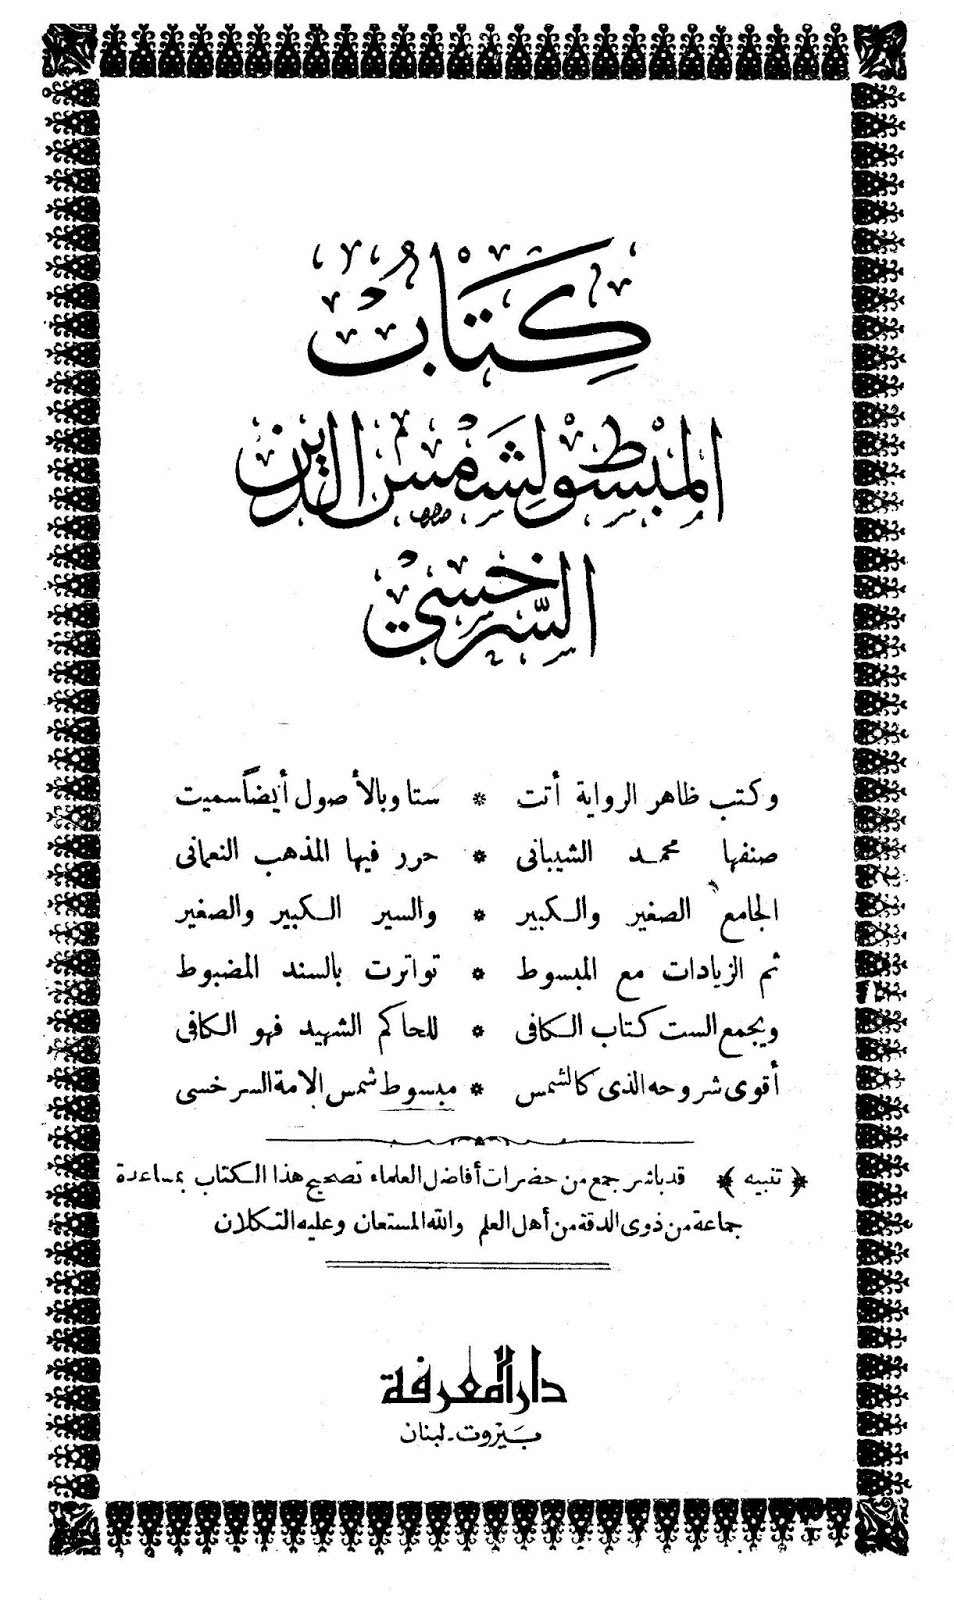 كِتَابُ
المَبسُوطِ لِشَمسِ الدِين
السَّرَخْسِي
وكتب ظاهر الرواية أتت * ستا وبالأصول أيضاً سميت
صنفها محمد الشيبانى * حرر فيها المذهب النعمانى
الجامع الصغير والكبير * والسير الكبير والصغير
ثم الزيادات مع المبسوط * تواترت بالسند المضبوط
ويجمع الست كتاب الكافى * للحاكم الشهيد فهو الكافى
أقوى شروحه الذى كالشمس * مبسوط شمس الامة السرخسى
﴿ تنبيه ﴾ قد باشر جمع من حضرات أفاضل العلماء تصحيح هذا الكتاب بمساعدة
جماعة من ذوى الدقة من أهل العلم والله المستعان وعليه التكلان
دار المعرفة
بَيروت - لبنان